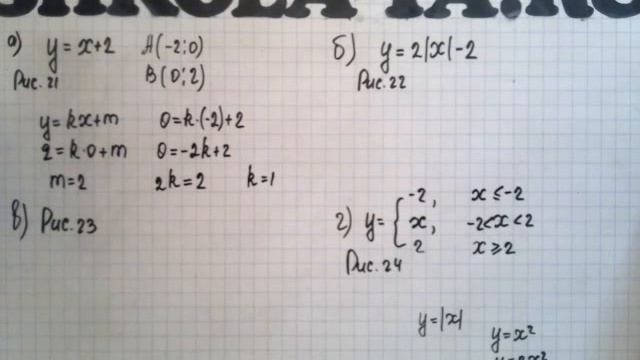 а) y = x+2 A(-2;0)
Рис. 21 B(0;2)
y = kx+m 0=k·(-2)+2
2=k·0+m 0=-2k+2
m=2 2k=2 k=1
б) y = 2|x|-2
Рис. 22
в) Рис. 23
г) y= { -2, x ≤ -2
x, -2<x<2
2 x ≥ 2
Рис. 24
y=|x|
y=x²